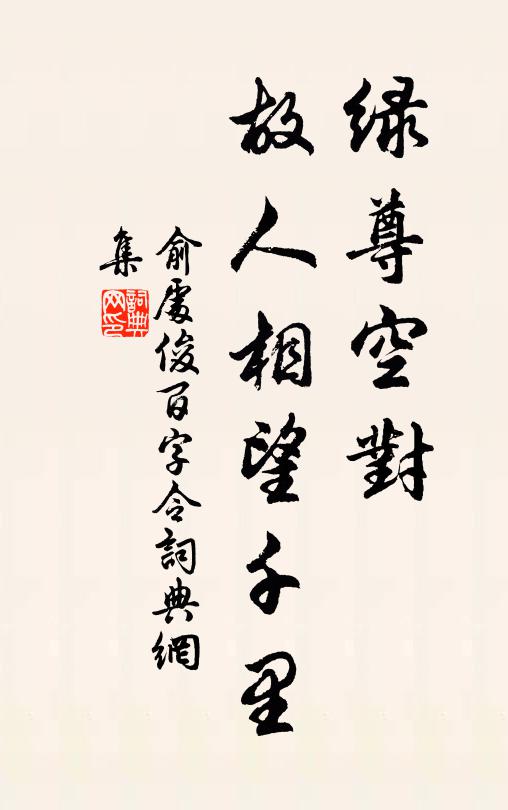 綠尊空對
故人相望千里
俞處俊百字令詞典網
集
詞典
网印